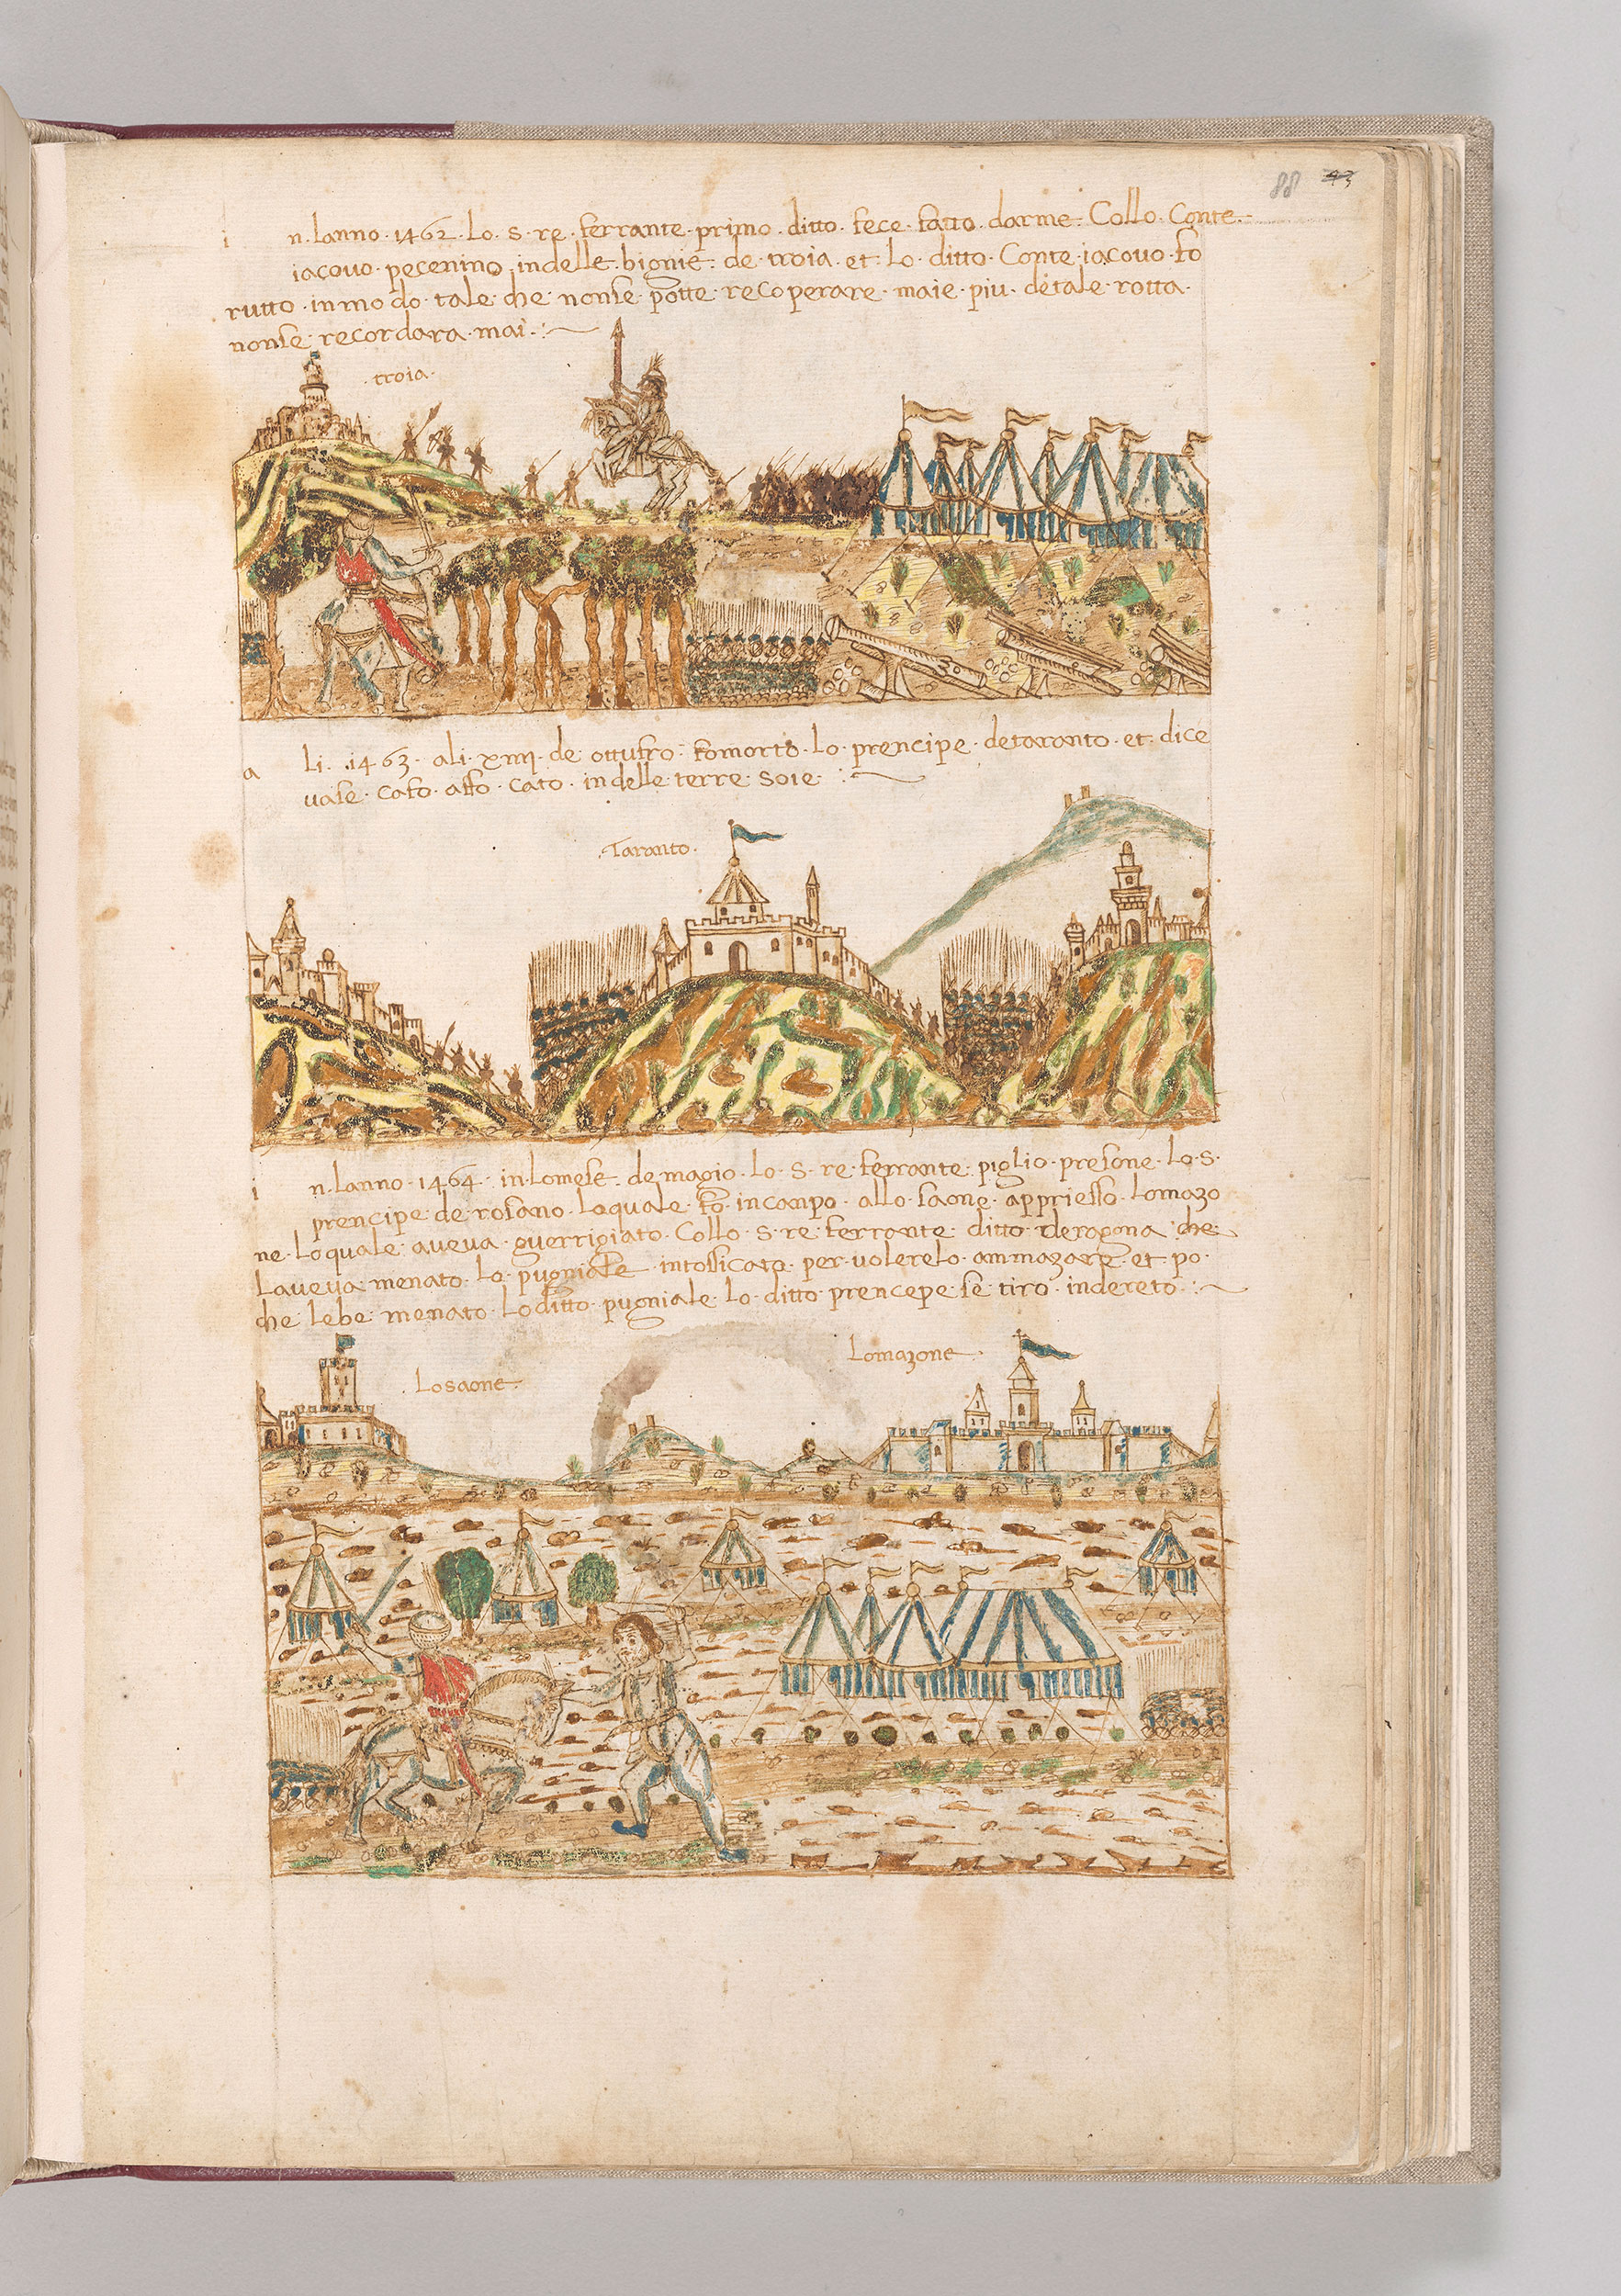 88 93
in lanno · 1462 · Lo · s · re · ferrante · primo · ditto · fece · fatto · darme · Collo · Conte ·
iacovo · pecenino · indelle · bignie · de · troia · et · lo · ditto · Conte · iacovo · fo
rutto · inmodo · tale · che · nonse · potte · recoperare · maie · piu · detale · rotta ·
nonse · recordara · mai · :~
· troia ·
a li · 1463 · ali · xiiii · de · ottufro · fo morto · lo · prencipe · detaranto · et · dice
vase · cafo · affo · cato · indelle · terre · soie · :~
· Taranto ·
in lanno · 1464 · in · lomese · de magio · lo · s · re · ferrante · piglio · presone · lo · s ·
prencipe · de rosano · loquale · fo · incanpo · allo · saone · appriesso · lomazo
ne · loquale · aveva · guerrigiato · Collo · s · re · ferrante · ditto · deragona · che
laveva · menato · lo · pugniale · intossicato · per · volerelo · ammazare · et · po ·
che · lebe · menato · lo ditto · pugniale · lo · ditto · prencepe · se · tiro · indereto · :~
Lomazone ·
· Losaone ·